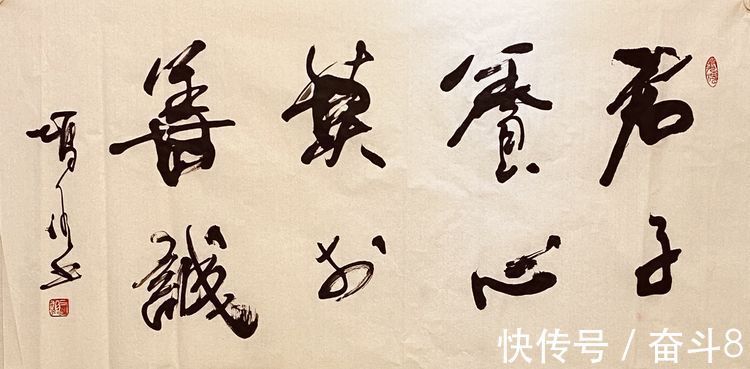 君子
養心
莫於
善誠
快传号 / 奋斗8